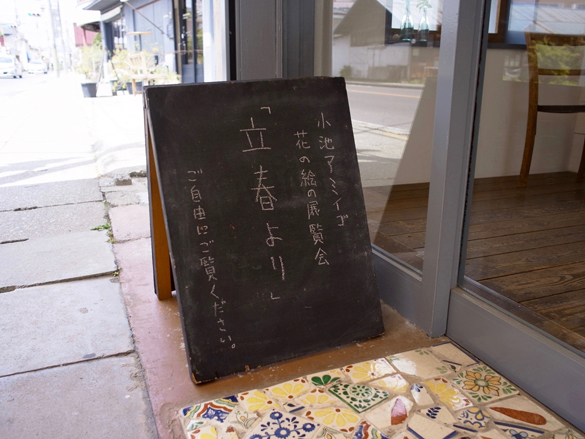 小池アミイゴ
花の絵の展覧会
「立春より」
ご自由にご覧ください。